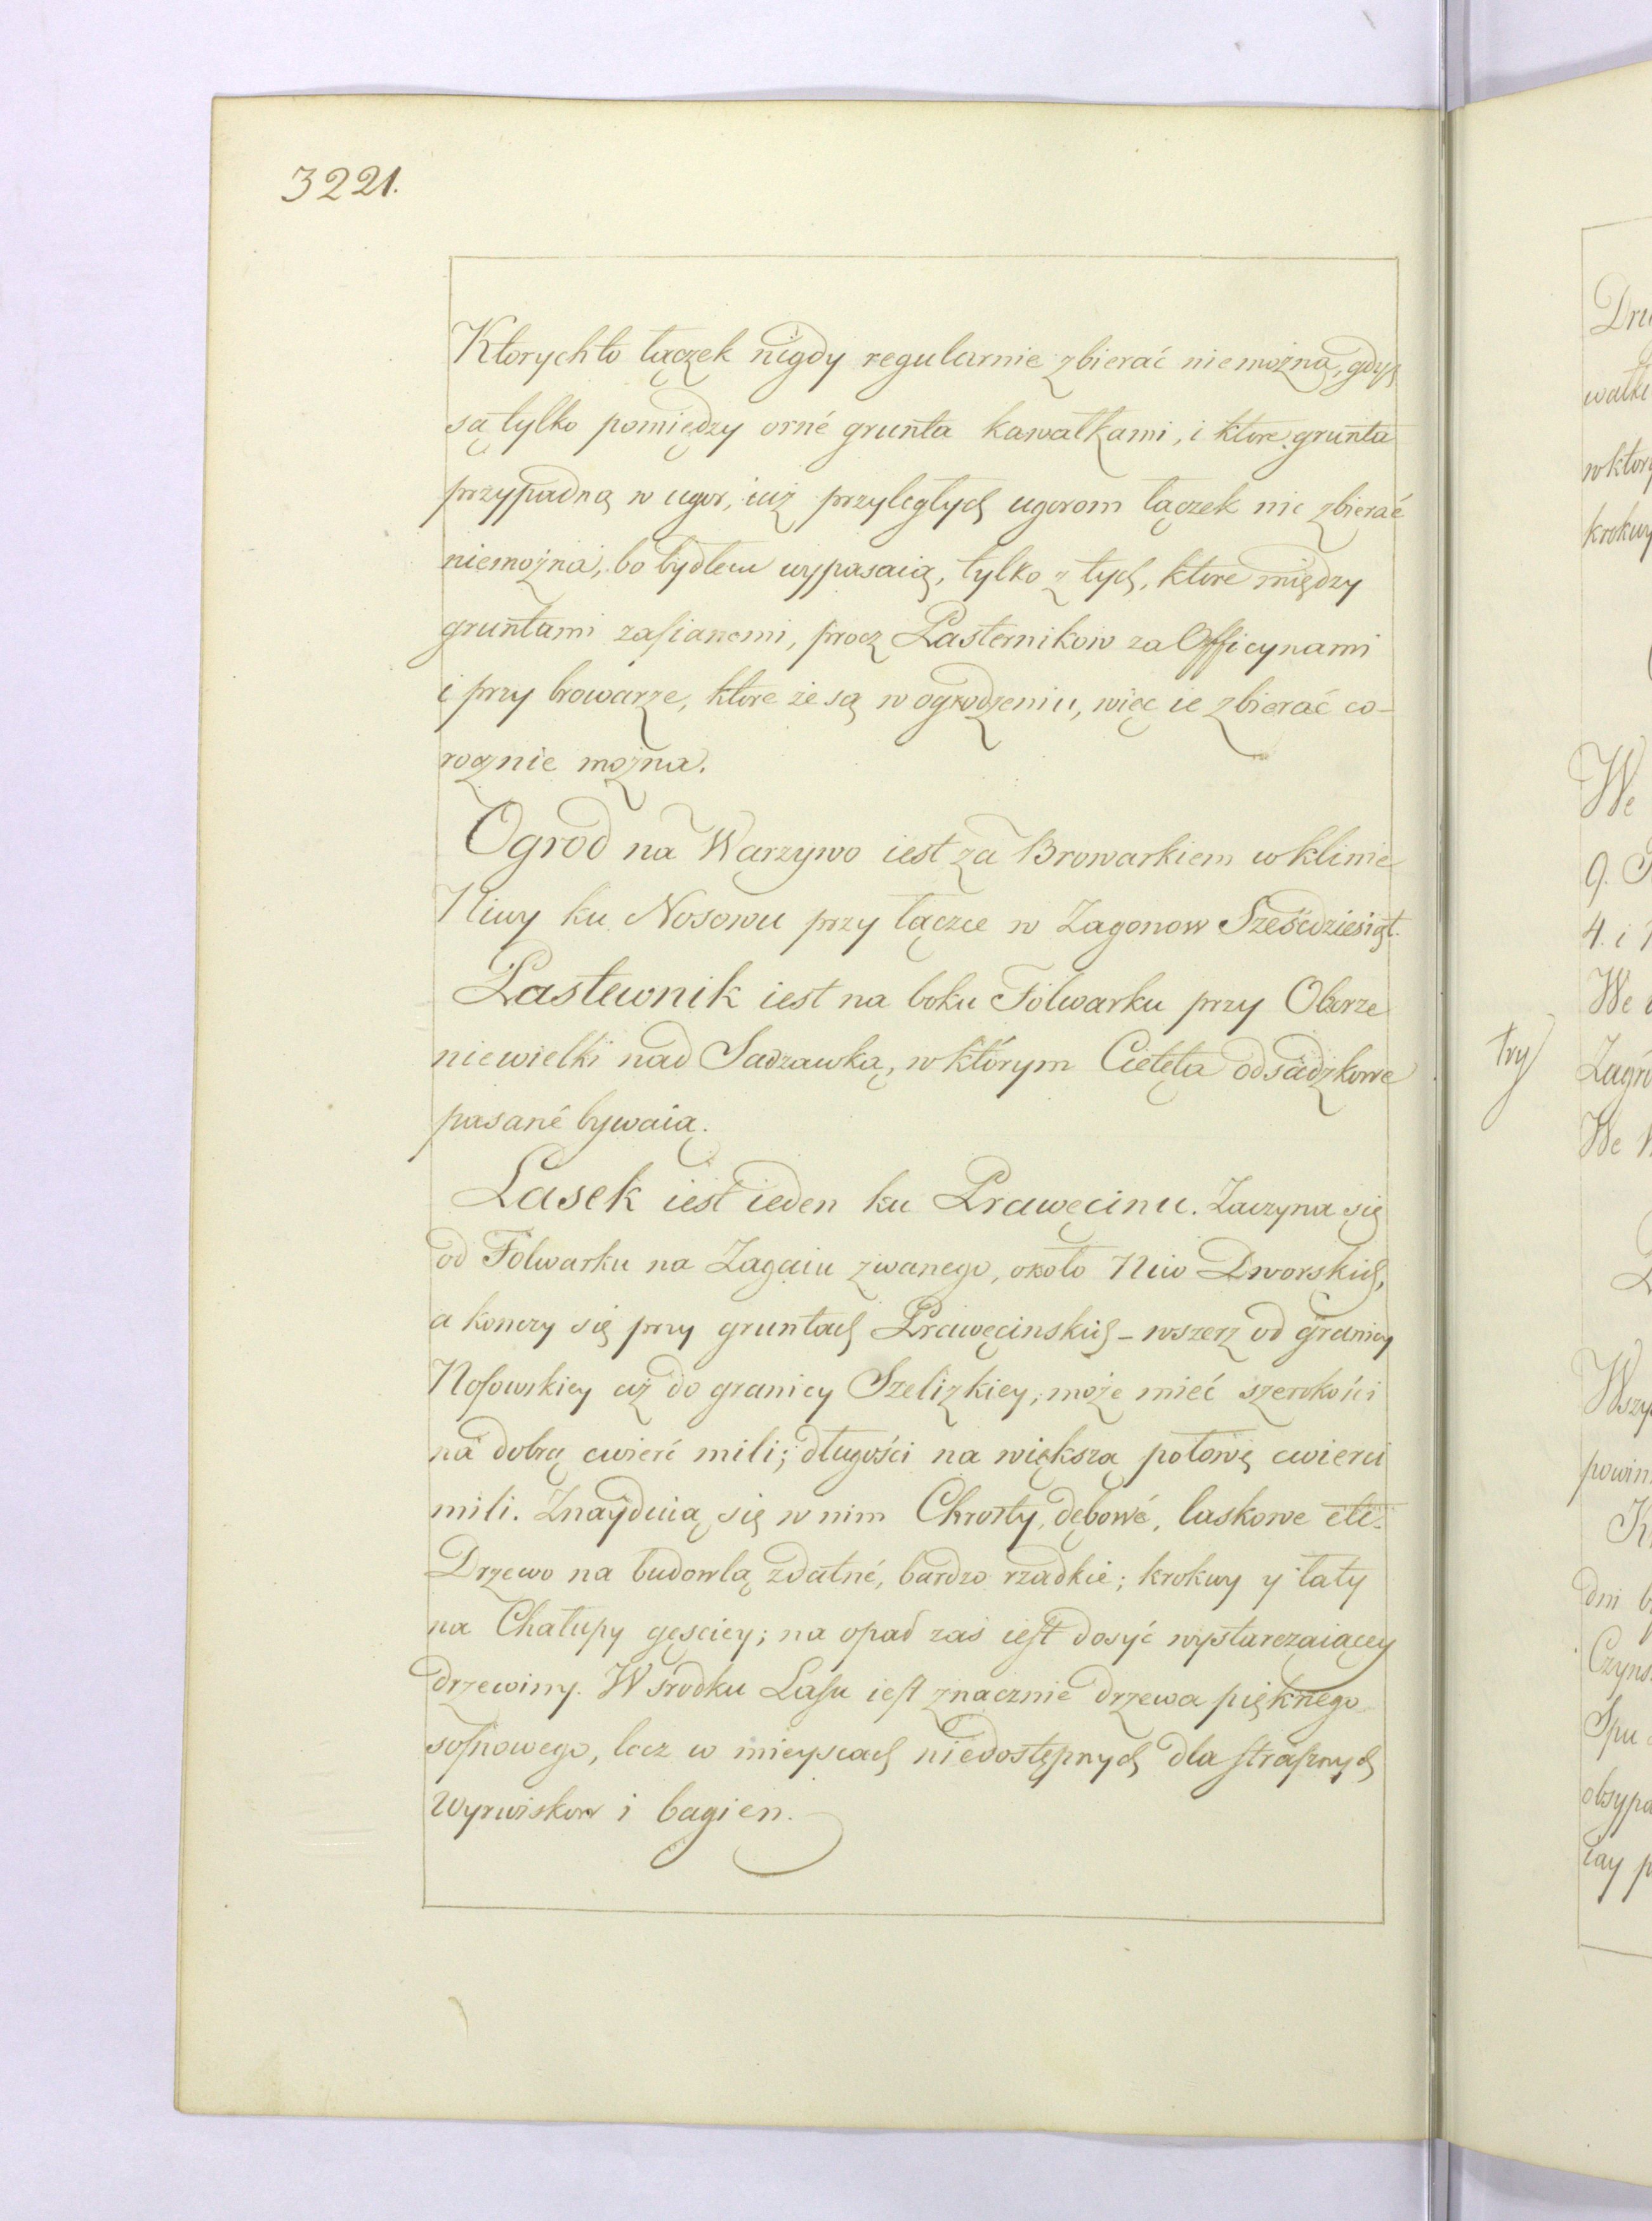 3221.
Ktorychto łączek nigdy regularnie zbierać nie można, gdyż
są tylko pomiędzy orné grunta kawałkami, i ktore grunta
przypadną w ugor, iuż przyległych ugorom łączek nic zbierać
niemożna, bo bydłem wypasaią, tylko z tych, ktore między
gruntami zasianemi, procz Pasternikow za Officynami
i przy browarze, ktore że są w ogrodzeniu, więc ie zbierać co-
rocznie można.
Ogrod na Warzywo iest za Browarkiem w klinie
Niwy ku Nosowu przy łączce w Zagonow Sześćdziesiąt.
Pastewnik iest na boku Folwarku przy Oborze
niewielki nad Sadzawką, w którym Cielęta odsadzkowe
pasané bywaią.
Lasek iest ieden ku Prawęcinu. Zaczyna się
od Folwarku na Zagaiu zwanego, około Niw Dworskich,
a konczy się przy gruntach Prawęcinskich – wszerz od granicy
Nosowskiey aż do granicy Szelizkiey, może mieć szerokości
na dobrą cwierć mili; długości na większą połowę cwierci
mili. Znayduią się w nim Chrosty, dębowé, laskowe etc.
Drzewo na budowlą zdatné, bardzo rzadkie; krokwy y łaty
na Chałupy gęsciey; na opał zaś iest dosyć wystarczaiącey
drzewiny. W srodku Lasu iest znacznie drzewa pięknego
sosnowego, lecz w mieyscach niedostępnych dla strasznych
Wyrwiskow i bagien.
try
Dru
wałki
w ktory
krokwy
We
9.
4. i
We
Zagro
We
Wszy
powin
dni
Czyns
Spu
obsypa